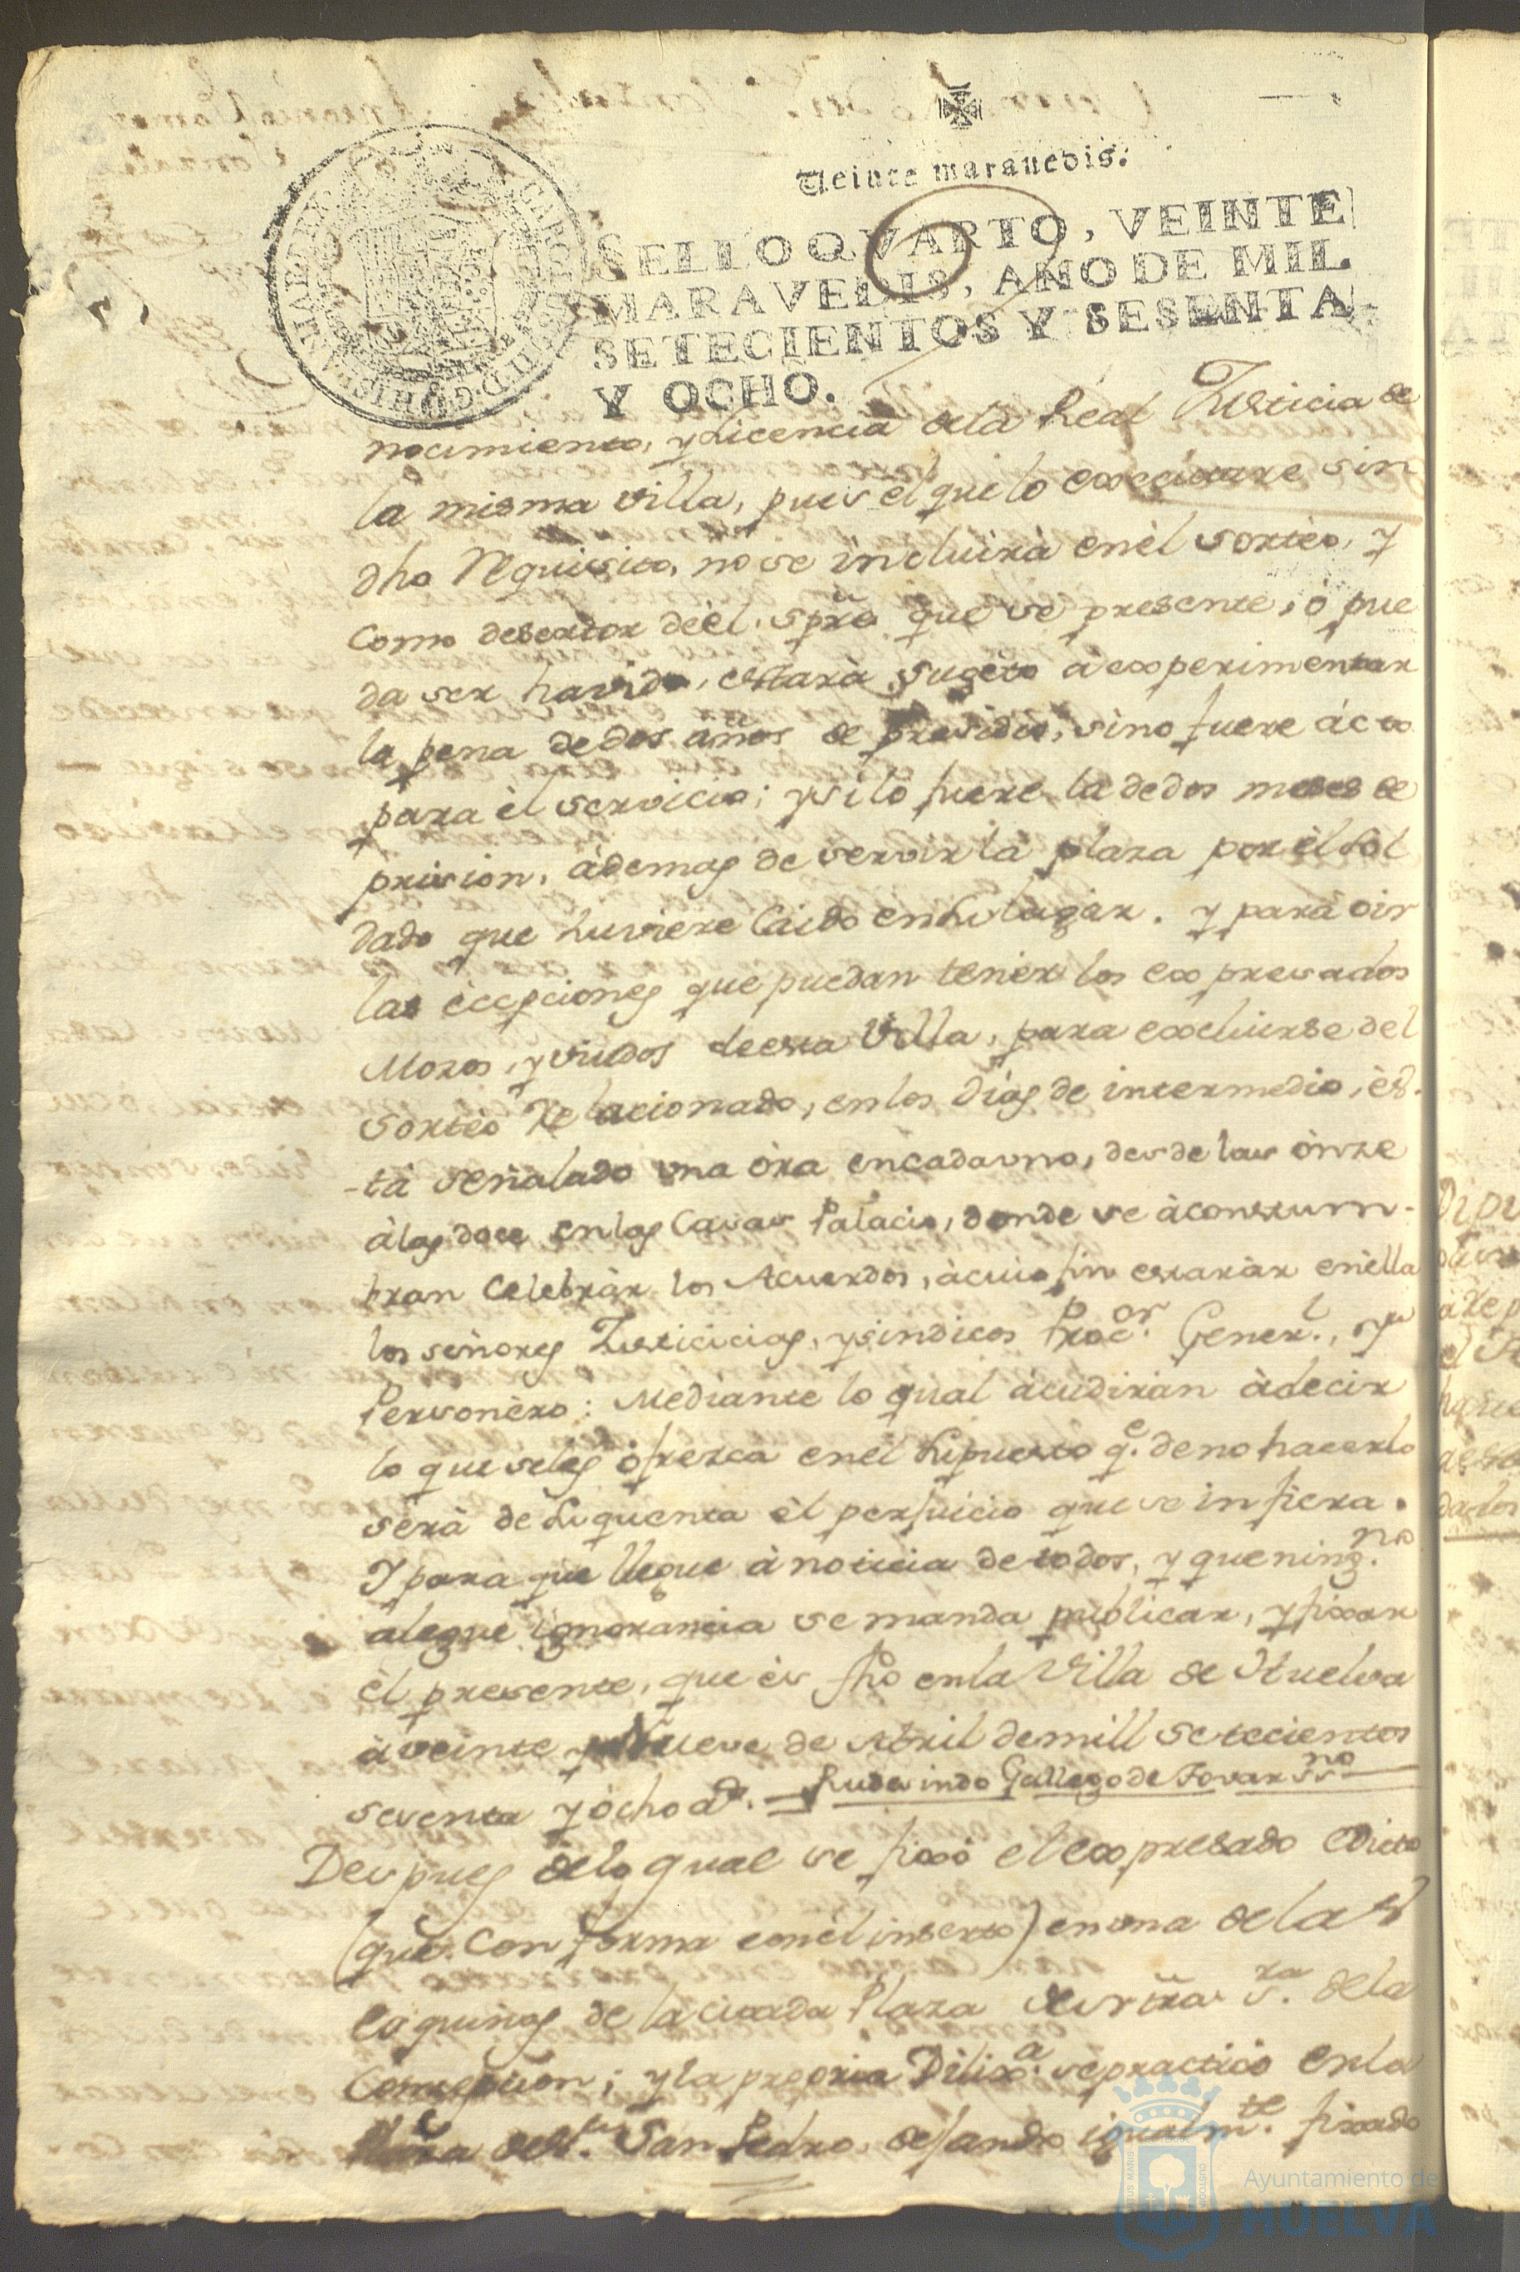 Veinte marauedis.
SELLO QVARTO, VEINTE
MARAVEDIS, AÑO DE MIL
SETECIENTOS Y SESENTA
Y OCHO.
nocimiento, y Licencia dela Real Justicia de
la misma villa, pues el que lo executare sin
dho Requisito, no se incluirà en èl sorteo, y
como desertor deèl, spre que se presente, ò pue
da ser havido, estarà sugeto à experimentar
la pena de dos años de presidio, sino fuere ácto
para èl servicio; y si lo fuere la de dos meses de
prision, àdemas de servir la plaza por èl Sol
dado que huviere Caido en su lugar. y para oir
las ècepciones que puedan tener los expresados
Mozos, y viudos de esta Villa, para excluirse del
sorteo Relacionado, en los dias de intermedio, és-
-tà señalado una òra en cada uno, desde las ònze
à las doce en las Casas Palacio, donde se àcostum-
bran Celebrar los Acuerdos, àcuio fin estaràn en èlla
los señores Justicicias, y sindicos Procor. Generl., y
Personèro: Mediante lo qual àcudiràn àdecir
lo que seles òfrezca en èl supuesto qe. de no hacerlo
serà de su quenta èl perjuicio que se infiera.
Y para que llegue à noticia de todos, y que ningno.
alegue ignorancia se manda publicar, y fixar
èl presente, que és fho en la Villa de Huelva
à veinte y Nueve de Abril de mill setecientos
sesenta y òcho as. Rudesindo Gallego de Tovar ssno
Despues de lo qual se fixò el expresado Edicto
(que Conforma con èl inserto) en una de las
esquinas de la citada Plaza de nra Sra. de la
Concepcion; y la propria Dilixa. se practicò en la
de Sr. San Pedro, dejando igualmte. fixado
Ayuntamiento de
HUELVA